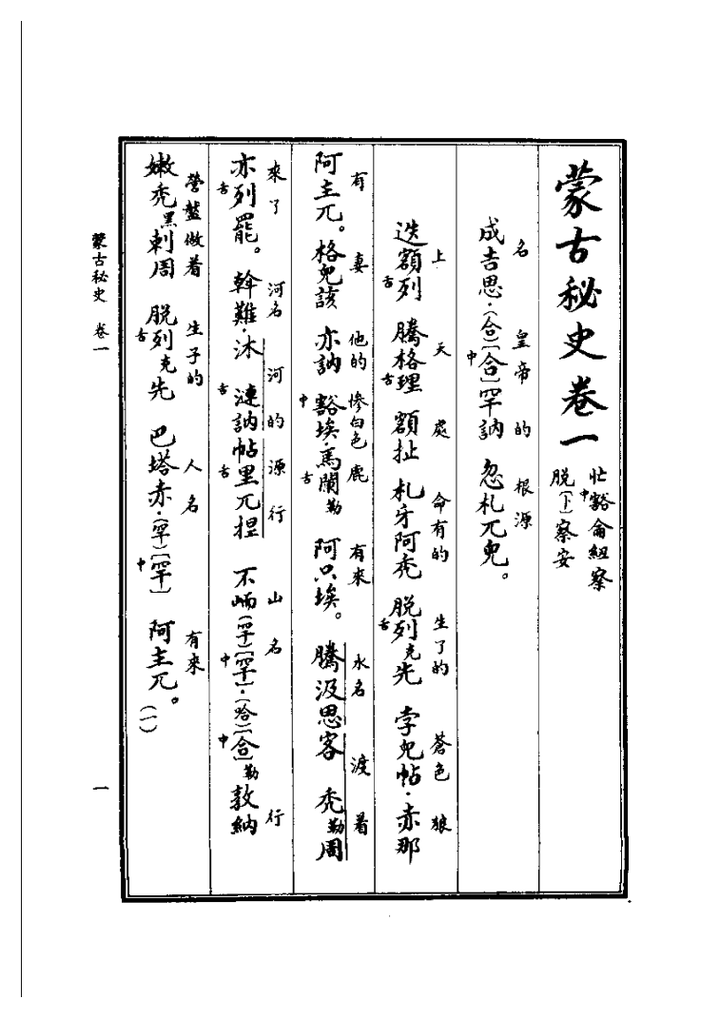 蒙古秘史卷一
忙中豁侖紐察
脫〔卜〕察安
名 皇帝的 根源
成吉思·(合)〔中合〕罕訥 忽札兀兒。
上 天 處 命有的 生了的 蒼色 狼
迭額舌列 騰格舌理 額扯 札牙阿禿 脫舌列克先 孛兒帖·赤那
有 妻 他的 慘白色 鹿 有來 水名 渡着
阿主兀。格兒該 亦訥 中豁埃·馬舌闌勒 阿只埃。騰汲思客 禿勒周
來了 河名 河的 源行 山名 行
亦舌列罷。斡難·沐舌漣訥 帖舌里兀揑 不峏(罕)〔中罕〕·(哈)〔中合〕勒敦納
營盤做着 生子的 人名 有來
嫩禿黑剌周 脫舌列克先 巴塔赤·(罕)〔中罕〕 阿主兀。(一)
蒙古秘史 卷一
一